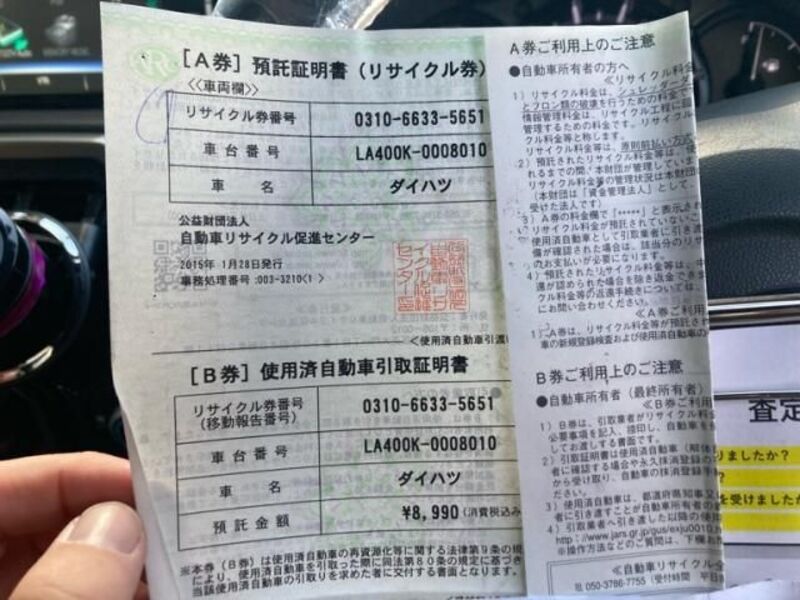 [A券] 預託証明書(リサイクル券)
<<車両欄>>
リサイクル券番号 0310-6633-5651
車台番号 LA400K-0008010
車名 ダイハツ
公益財団法人
自動車リサイクル促進センター
2015年 1月28日発行
事務処理番号:003-3210<1 >
<使用済自動車引渡
[B券] 使用済自動車引取証明書
リサイクル券番号
(移動報告番号) 0310-6633-5651
車台番号 LA400K-0008010
車名 ダイハツ
預託金額 ¥8,990(消費税込み
*本券(B券)は使用済自動車の再資源化等に関する法律第9条の規
により、使用済自動車を引取った際に同法第80条の規定に基づき
当該使用済自動車の引取りを求めた者に交付する書面となります。
A券ご利用上のご注意
●自動車所有者の方へ
≪リサイクル料金
1) リサイクル料金は、シュレッダーダ
とフロン類の破壊を行うための料金で
情報管理料金は、リサイクル工程に
管理するための料金です。リサイクル
ル料金等と称します。
リサイクル料金等は、原則前払い方
2) 預託されたリサイクル料金等は、
れるまでの間、本財団が管理していま
リサイクル料金等の管理状況は本財団
(本財団は「資金管理法人」として、
受けた法人です)
3) A券の料金欄で「*****」と表示され
イクル料金等が預託されていないこ
使用済自動車として引取業者に引き
備が確認された場合は、該当分のリサ
のお支払いが必要になります。
4) 預託されたリサイクル料金等は、中
還が認められた場合を除き返金できま
クル料金等の返還手続きについては、
にお問い合わせください。
≪A券ご利
1) A券は、リサイクル料金等が預託され
車の新規登録検査および使用済自動車
B券ご利用上のご注意
●自動車所有者(最終所有者)
≪B券ご利用
1) B券は、引取業者がリサイクル料
必要事項を記入、捺印し、自動車を
してお渡しする書面です。
2) 引取証明書は使用済自動車(解体
者に確認する場合や永久抹消登録の
から受け取り、自動車の抹消登録
ださい。
3) 使用済自動車は、都道府県知事又
者に引き渡すことが自動車所有者の
4) 引取業者へ引き渡した以降の使用
http://www.jars.gr.jp/gus/exju0010.
※操作方法などのご質問は、下欄お
自動車リサイクル
℡ 050-3786-7755(受付時間 平日
査定
りましたか?
を受けましたか